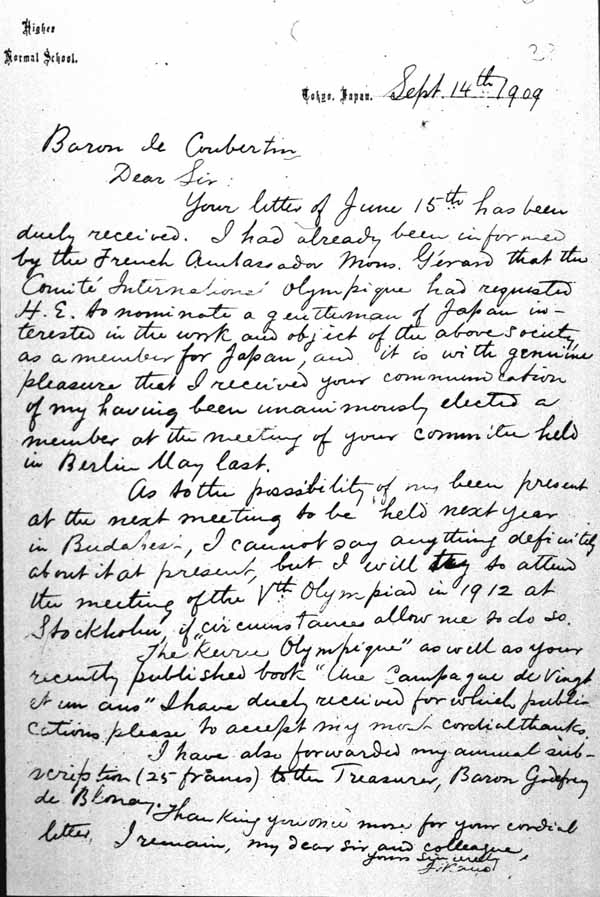 Higher
Normal School.
Tokyo, Japan. Sept. 14th 1909
Baron de Coubertin
Dear Sir:
Your letter of June 15th has been
duely received. I had already been informed
by the French Ambassador Mons. Gérard that the
Comité International Olympique had requested
H. E. to nominate a gentleman of Japan in-
terested in the work and object of the above society,
as a member for Japan, and it is with genuine
pleasure that I received your communication
of my having been unanimously elected a
member at the meeting of your committee held
in Berlin May last.
As to the possibility of my been present
at the next meeting to be held next year
in Budapest, I cannot say anything definitely
about it at present, but I will try to attend
the meeting of the Vth Olympiad in 1912 at
Stockholm, if circumstances allow me to do so.
The "Revue Olympique" as well as your
recently published book "Une Campagne de Vingt
et un ans" I have duely received for which publi-
cations please to accept my most cordial thanks.
I have also forwarded my annual sub-
scription (25 francs) to the Treasurer, Baron Godefroy
de Blonay.
Thanking you once more for your cordial
letter, I remain, my dear sir and colleague,
yours sincerely
J. Kano